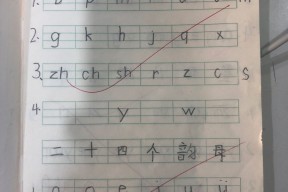 1. b p m
2. g k h j q x
3. zh ch sh r z c s
4 y w
二十四个韵母